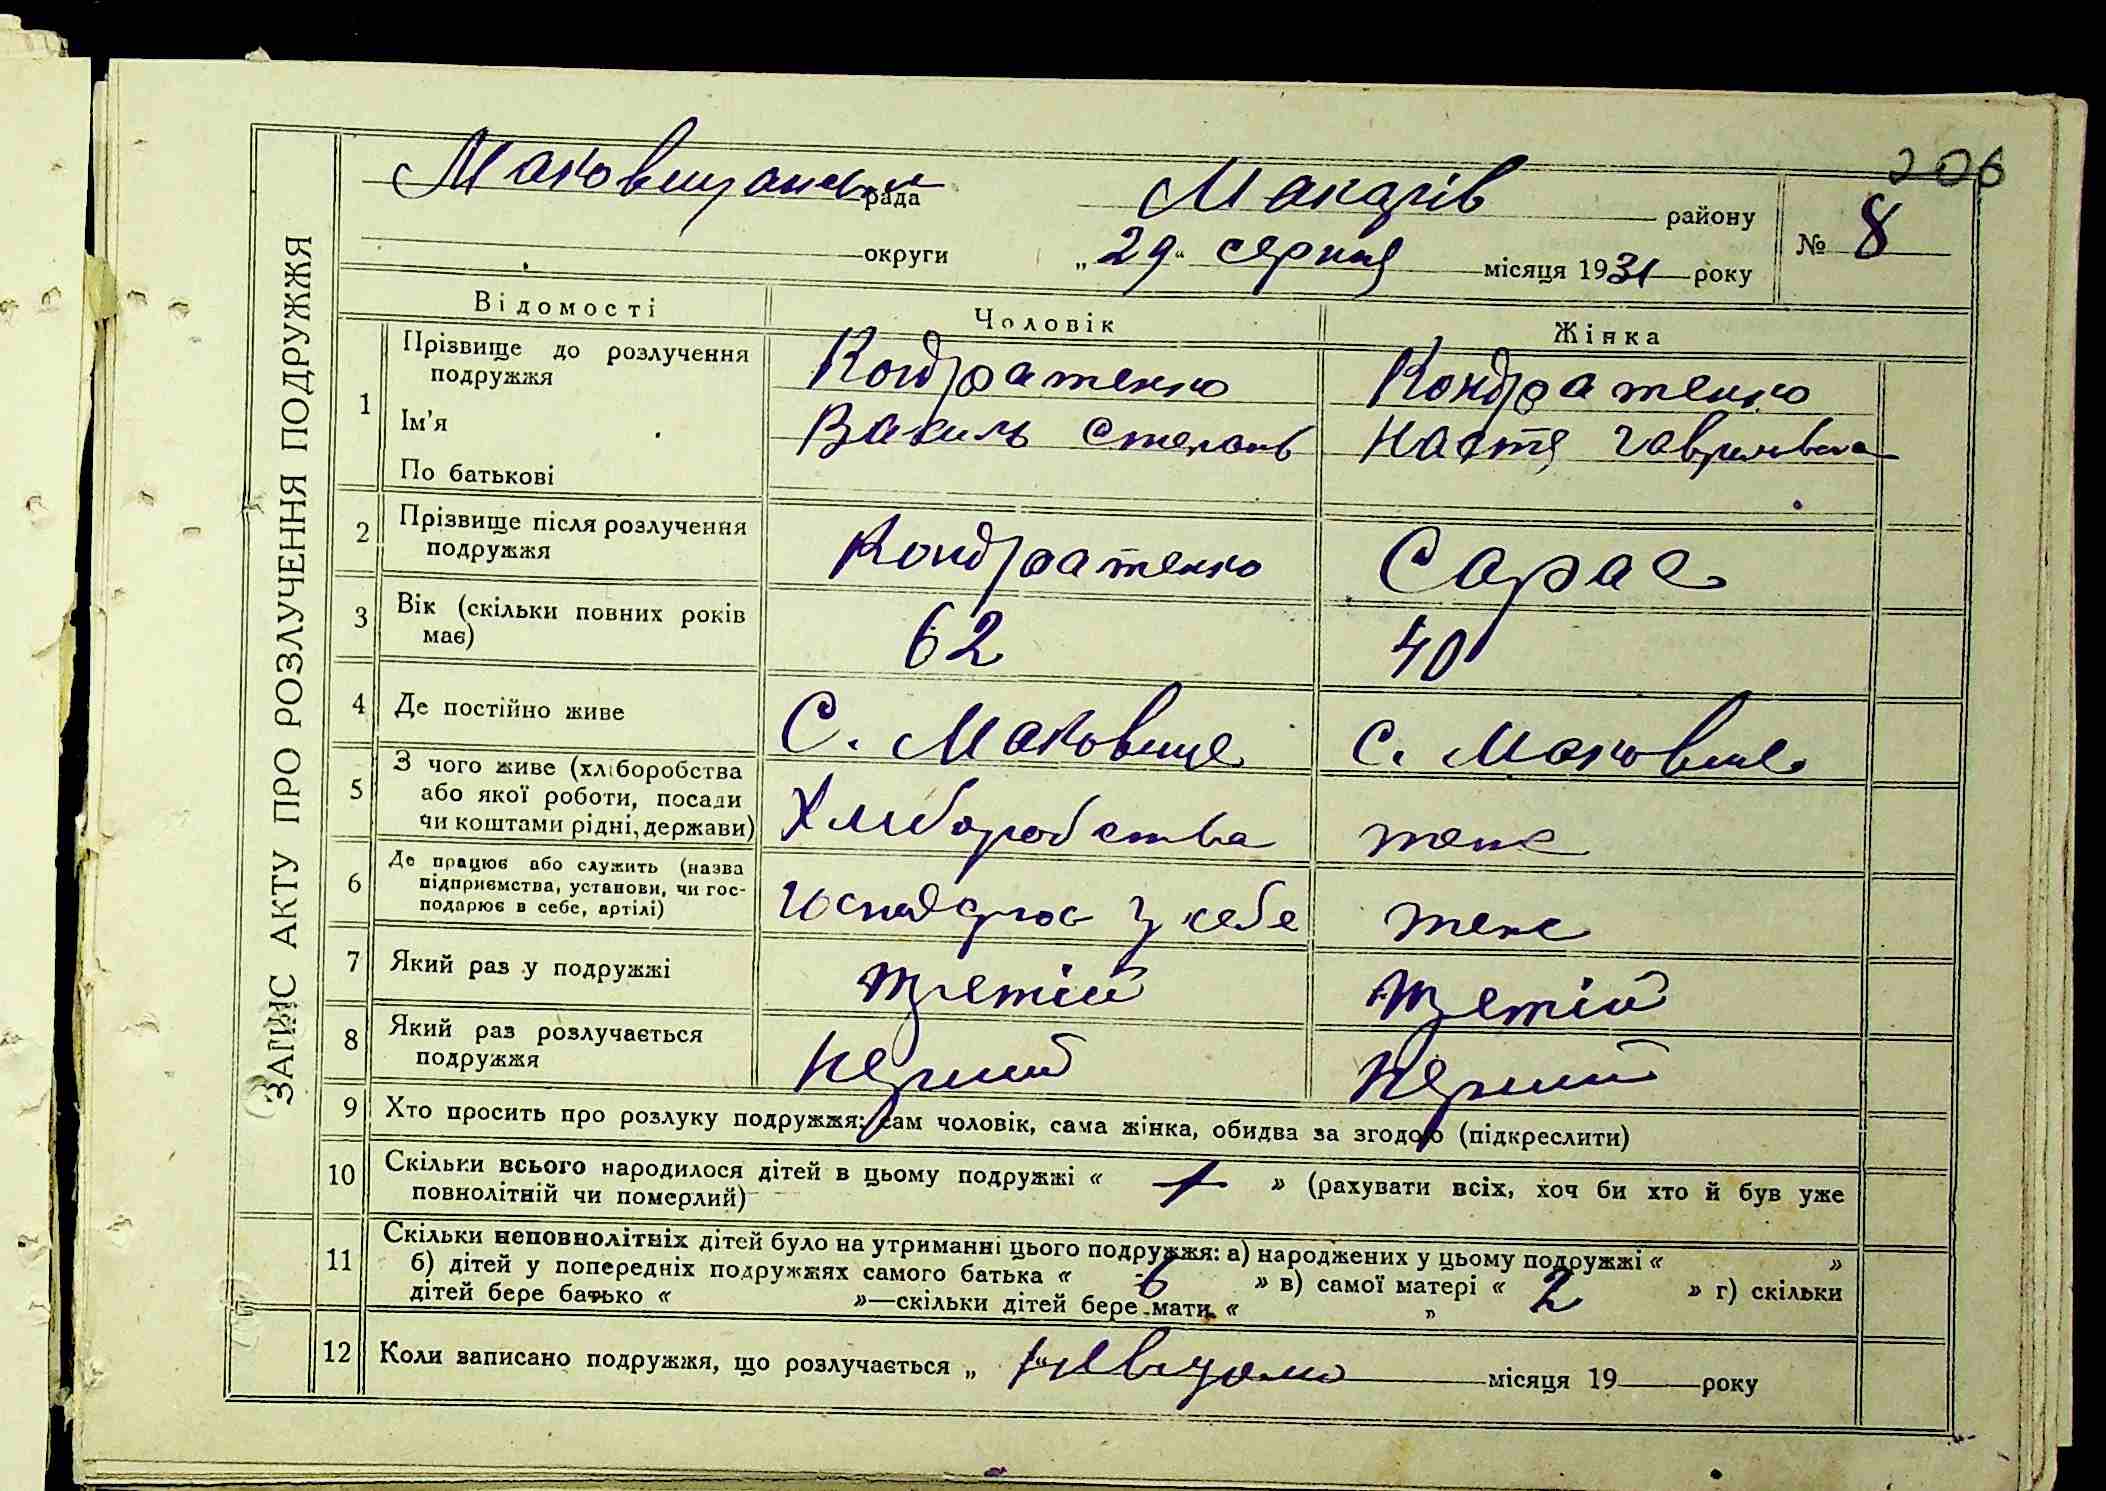 206
ЗАПИС АКТУ ПРО РОЗЛУЧЕННЯ ПОДРУЖЖЯ
Маковищанська рада Макарів району
№ 8
округи „29“ серпня місяця 1931 року
Відомості Чоловік Жінка
1 Прізвище до розлучення подружжя Кондратенко Кондратенко
Ім'я Василь Степанів Настя Гаврилівна
По батькові
2 Прізвище після розлучення подружжя Кондратенко Сарас
3 Вік (скільки повних років має) 62 40
4 Де постійно живе С. Маковище С. Маковище
5 З чого живе (хліборобства або якої роботи, посади чи коштами рідні, держави) Хліборобства теж
6 Де працює або служить (назва підприємства, установи, чи господарює в себе, артілі) Господарює у себе теж
7 Який раз у подружжі третій третій
8 Який раз розлучається подружжя перший перший
9 Хто просить про розлуку подружжя: сам чоловік, сама жінка, обидва за згодою (підкреслити)
10 Скільки всього народилося дітей в цьому подружжі « » (рахувати всіх, хоч би хто й був уже
повнолітній чи померлий)
11 Скільки неповнолітніх дітей було на утриманні цього подружжя: а) народжених у цьому подружжі « »
б) дітей у попередніх подружжях самого батька « 6 » в) самої матері « 2 » г) скільки
дітей бере батько « »—скільки дітей бере мати « »
12 Коли записано подружжя, що розлучається „ невідомо місяця 19 року